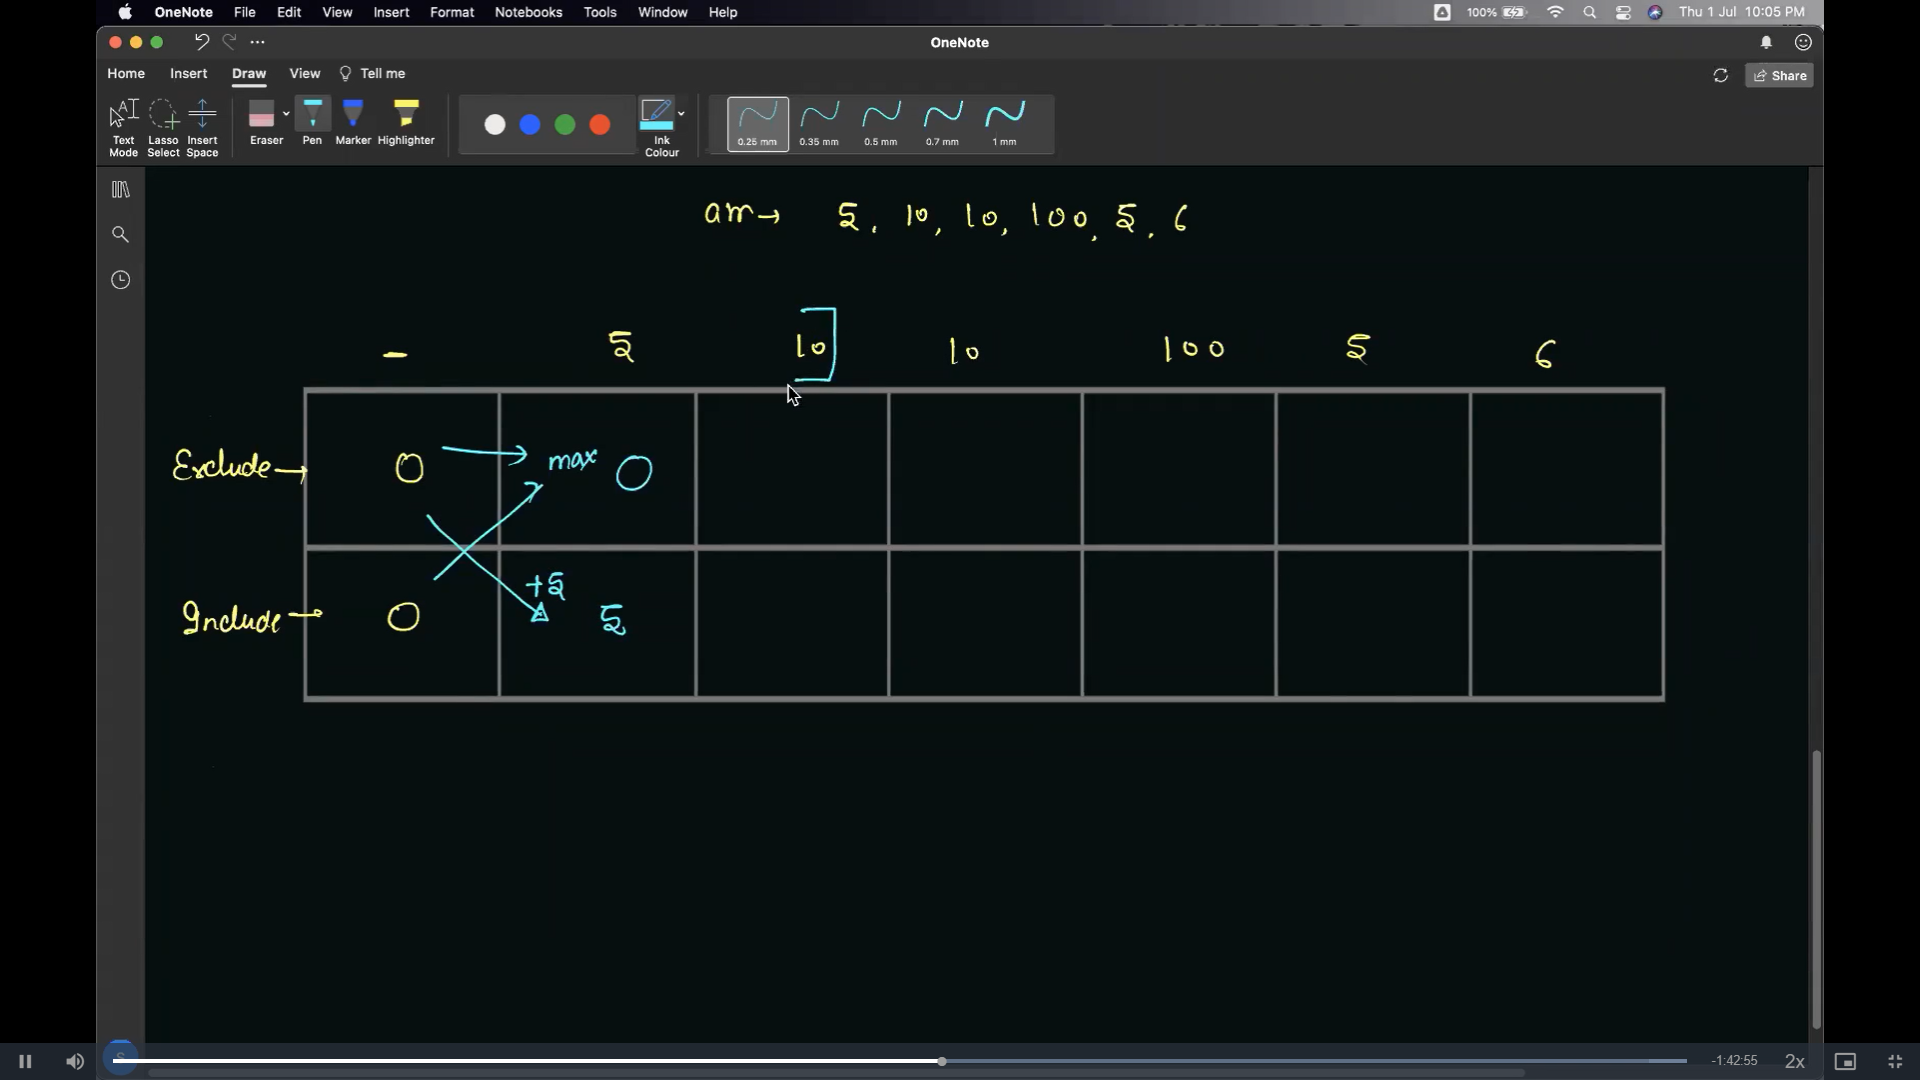 OneNote File Edit View Insert Format Notebooks Tools Window Help 100% Thu 1 Jul 10:05 PM
OneNote
Home Insert Draw View Tell me Share
Text Mode Lasso Select Insert Space Eraser Pen Marker Highlighter Ink Colour 0.25 mm 0.35 mm 0.5 mm 0.7 mm 1 mm
arr→ 5, 10, 10, 100, 5, 6
- 5 10 10 100 5 6
Exclude→ 0 max 0
+5
Include→ 0 5
-1:42:55 2x